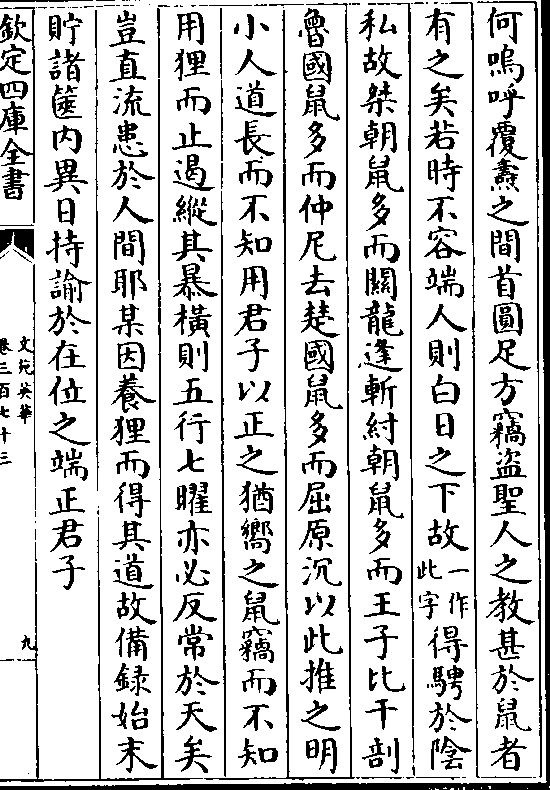 何嗚呼覆燾之間首圓足方竊盜聖人之教甚於鼠者
有之矣若時不容端人則白日之下故一作此字得騁於陰
私故桀朝鼠多而關龍逢斬紂朝鼠多而王子比干剖
魯國鼠多而仲尼去楚國鼠多而屈原沉以此推之明
小人道長而不知用君子以正之猶嚮之鼠竊而不知
用狸而止遏縱其暴橫則五行七曜亦必反常於天矣
豈直流患於人間耶某因養狸而得其道故備錄始末
貯諸篋內異日持諭於在位之端正君子
欽定四庫全書
文苑英華
卷三百七十三
九